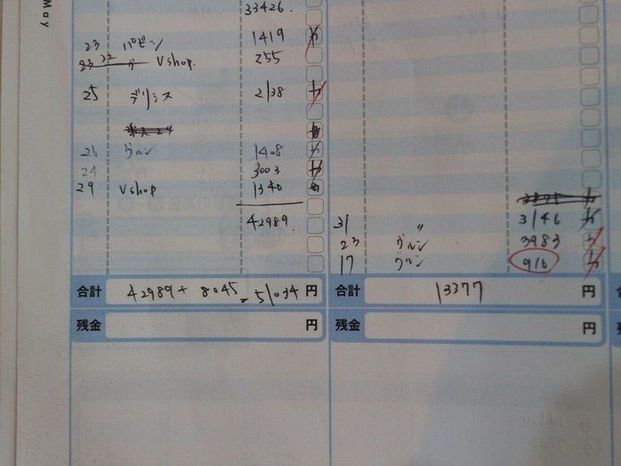 May
33426.
23 パピン 1419 カ
23 22 〃 Vshop. 255
25 デリシス 2138 カ
21 グルン 1408 カ
24 3003 カ
29 Vshop 1340
42989.
31 〃 3146 カ
23 グルン 3983 カ
17 グルン 916 カ
合計 42989 + 8045 = 51034 円
合計 13377 円
残金 円
残金 円